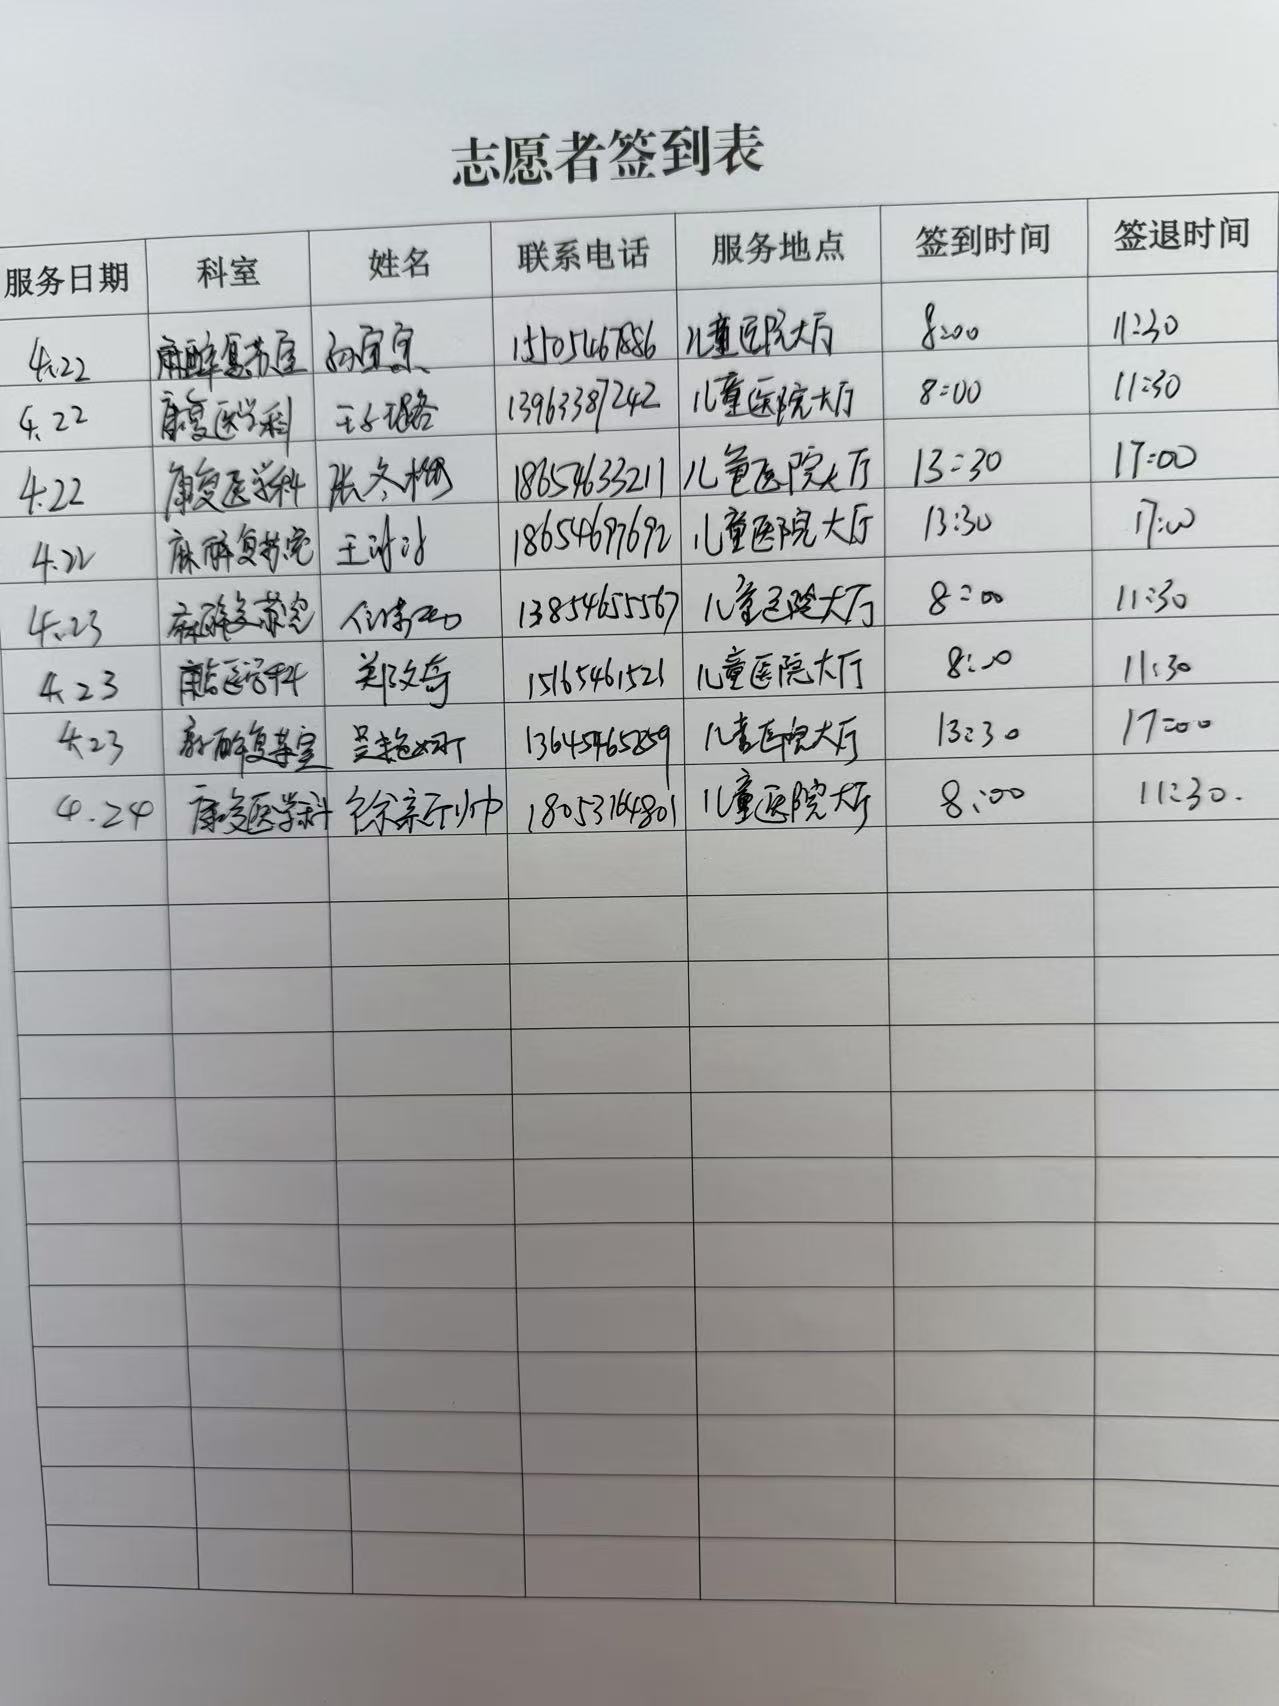 志愿者签到表
服务日期 科室 姓名 联系电话 服务地点 签到时间 签退时间
4.22 麻醉复苏室 孙宜宜 15105467886 儿童医院大厅 8:00 11:30
4.22 康复医学科 13963387242 儿童医院大厅 8:00 11:30
4.22 康复医学科 张冬梅 18654633211 儿童医院大厅 13:30 17:00
4.22 麻醉复苏室 王 18654697692 儿童医院大厅 13:30 17:00
4.23 麻醉复苏室 13854655567 儿童医院大厅 8:00 11:30
4.23 康复医学科 郑文奇 15165461521 儿童医院大厅 8:00 11:30
4.23 麻醉复苏室 吴艳 13645465859 儿童医院大厅 13:30 17:00
4.24 康复医学科 徐 18053764801 儿童医院大厅 8:00 11:30.